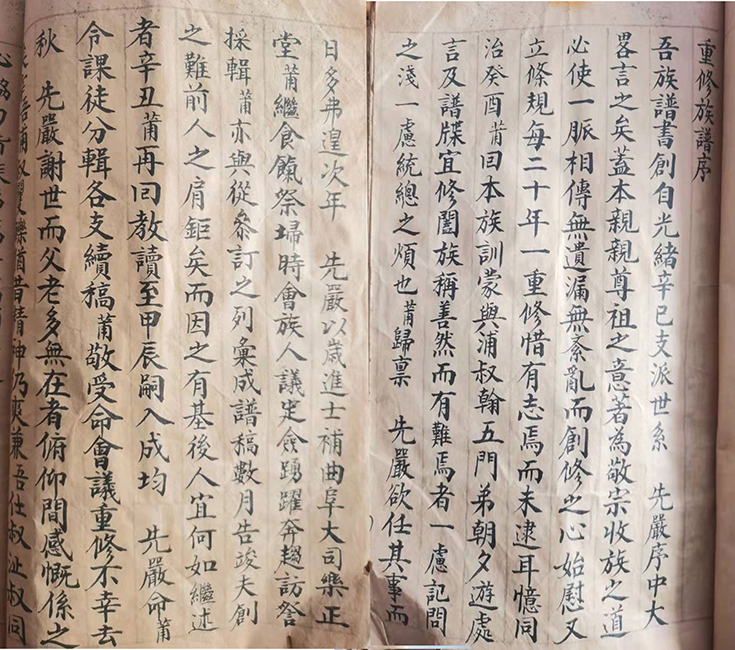 重修族譜序
吾族譜書創自光緒辛巳支派世系　先嚴序中大
畧言之矣蓋本親親尊祖之意著為敬宗收族之道
必使一脈相傳無遺漏無紊亂而創修之心始慰又
立條規每二十年一重修惜有志焉而未逮耳憶同
治癸酉莆囘本族訓蒙與浦叔翰五門弟朝夕遊處
言及譜牒宜修闔族稱善然而有難焉者一慮記問
之淺一慮統總之煩也莆歸稟　先嚴欲任其事而
日多弗遑次年　先嚴以歲進士補曲阜大司樂正
堂莆繼食餼祭埽時會族人議定僉踴躍奔趨訪咨
採輯莆亦與從參訂之列彙成譜稿數月告竣夫創
之難前人之肩鉅矣而因之有基後人宜何如繼述
者辛丑莆再囘教讀至甲辰嗣入成均　先嚴命莆
令課徒分輯各支續稿莆敬受命會議重修不幸去
秋　先嚴謝世而父老多無在者俯仰間感慨係之
浦叔矍鑠酋昔精神乃爽兼吾仕叔沚叔同